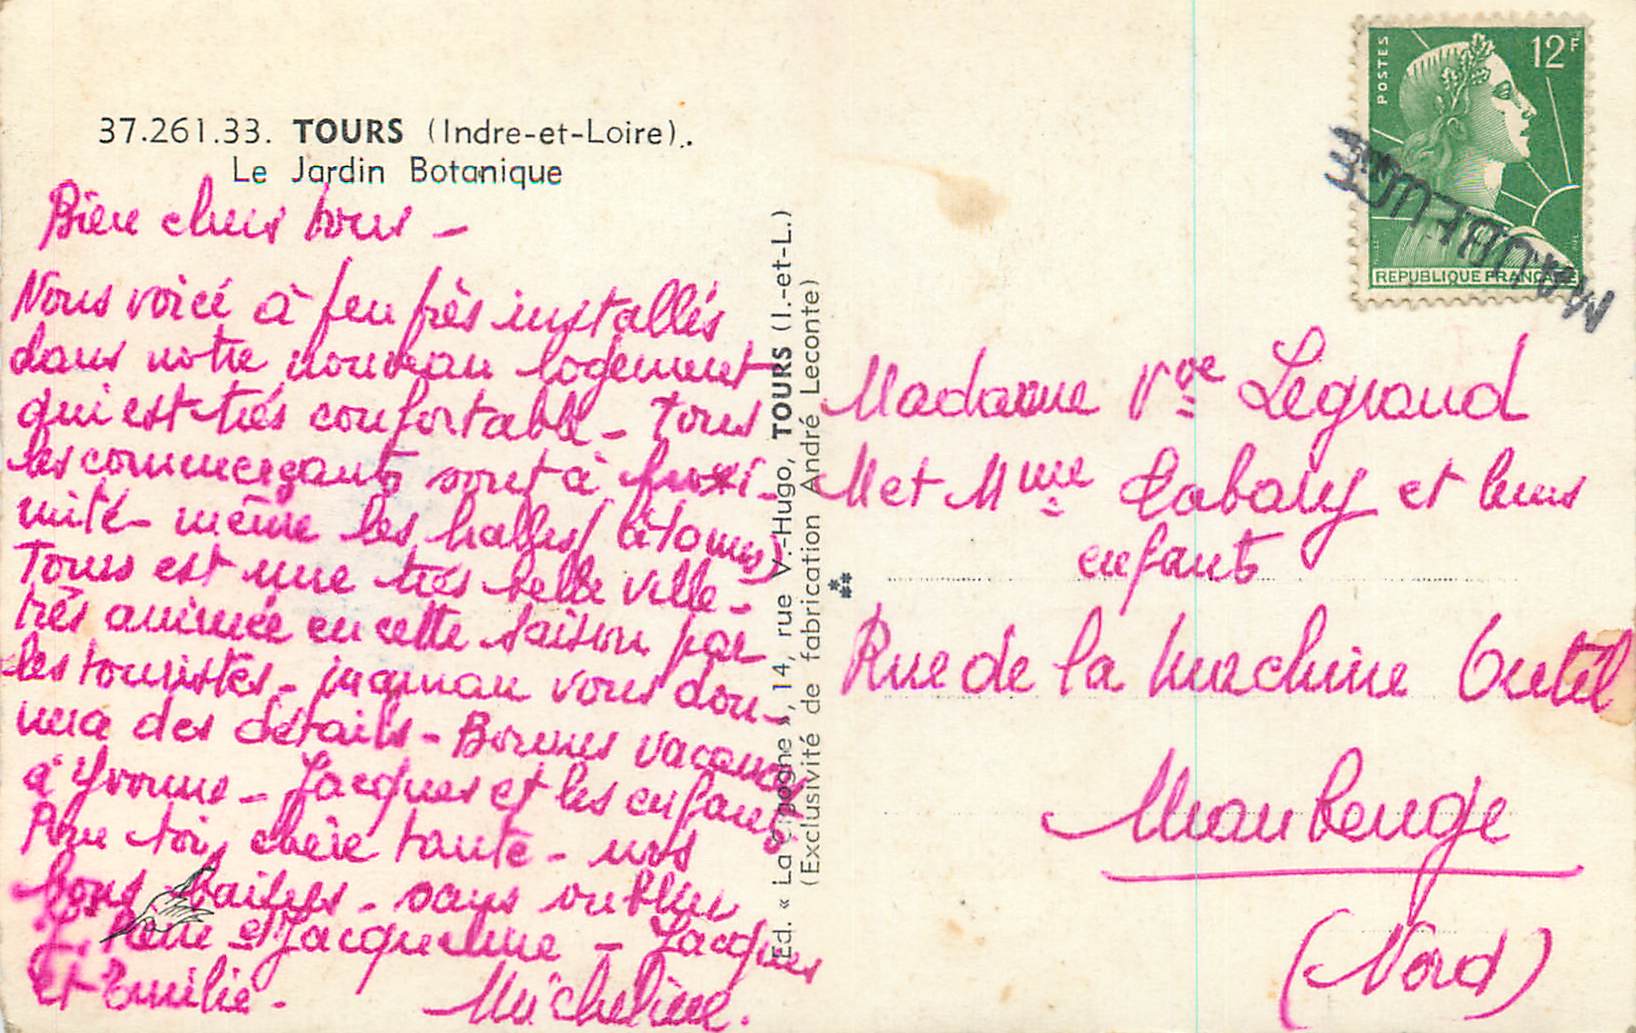 37.261.33. TOURS (Indre-et-Loire).
Le Jardin Botanique
Bien chers tous -
Nous voici à peu près installés
dans notre nouveau logement
qui est très confortable - tous
les commerçants sont à proxi-
mité - même les halles (à Tours)
Tours est une très belle ville -
très animée en cette saison par
les touristes - maman vous don-
nera des détails - Bonnes vacances
à Yvonne - Jacques et les enfants
Pour toi, chère tante - nos
bons baisers - sans oublier
J. Pierre et Jacqueline - Jacques
et Emilie - Micheline.
Ed. « La Cigogne », 14, rue V.-Hugo, TOURS (I.-et-L.)
(Exclusivité de fabrication André Leconte)
POSTES 12F
REPUBLIQUE FRANÇAISE
MAUBEUGE
Madame Vve Legrand
M et Mme Rabary et leurs
enfants
Rue de la machine Outil
Maubeuge
(Nord)